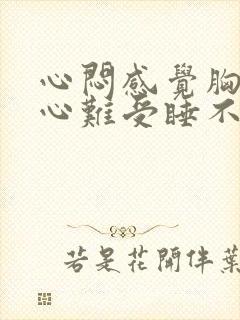 心悶感覺胸
心難受睡不
若是花開伴葉